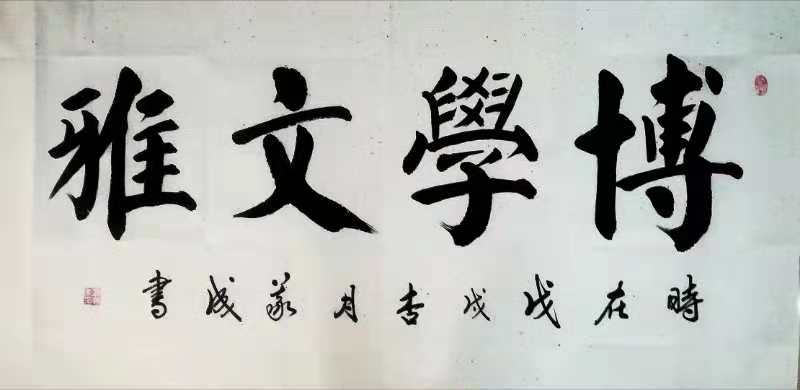 博學文雅
時在戊戌杏月義成書